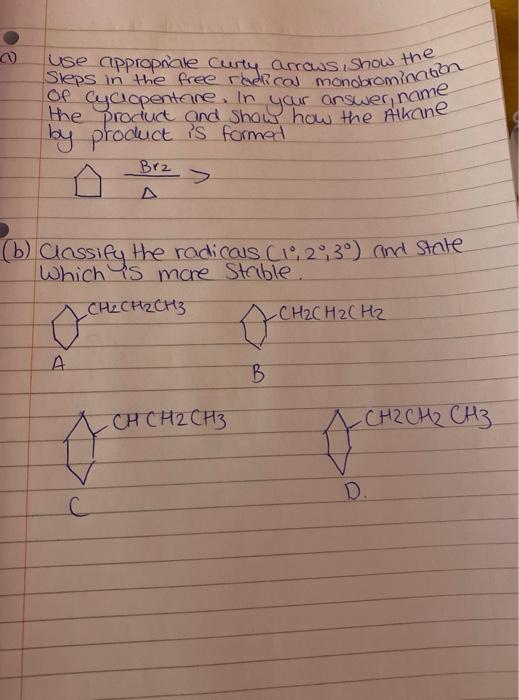 a) Use appropriate curly arrows, show the
steps in the free radical monobromination
of cyclopentane. In your answer, name
the product and show how the Alkane
by product is formed
Br2
Δ
(b) Classify the radicals (1°, 2°, 3°) and state
which is more stable.
CH2CH2CH3
CH2CH2CH2
A
B
CHCH2CH3
CH2CH2CH3
C
D.